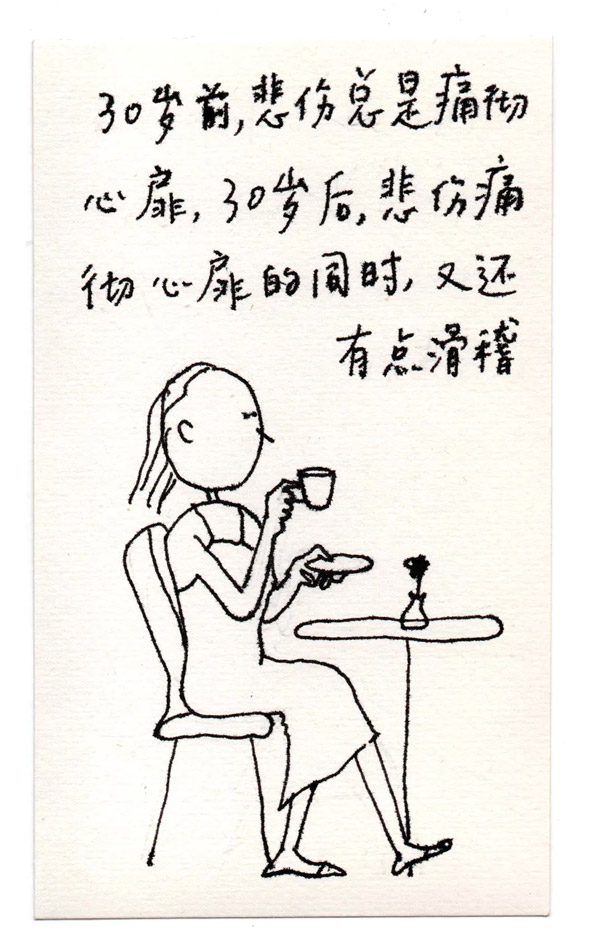 30岁前,悲伤总是痛彻
心扉,30岁后,悲伤痛
彻心扉的同时,又还
有点滑稽